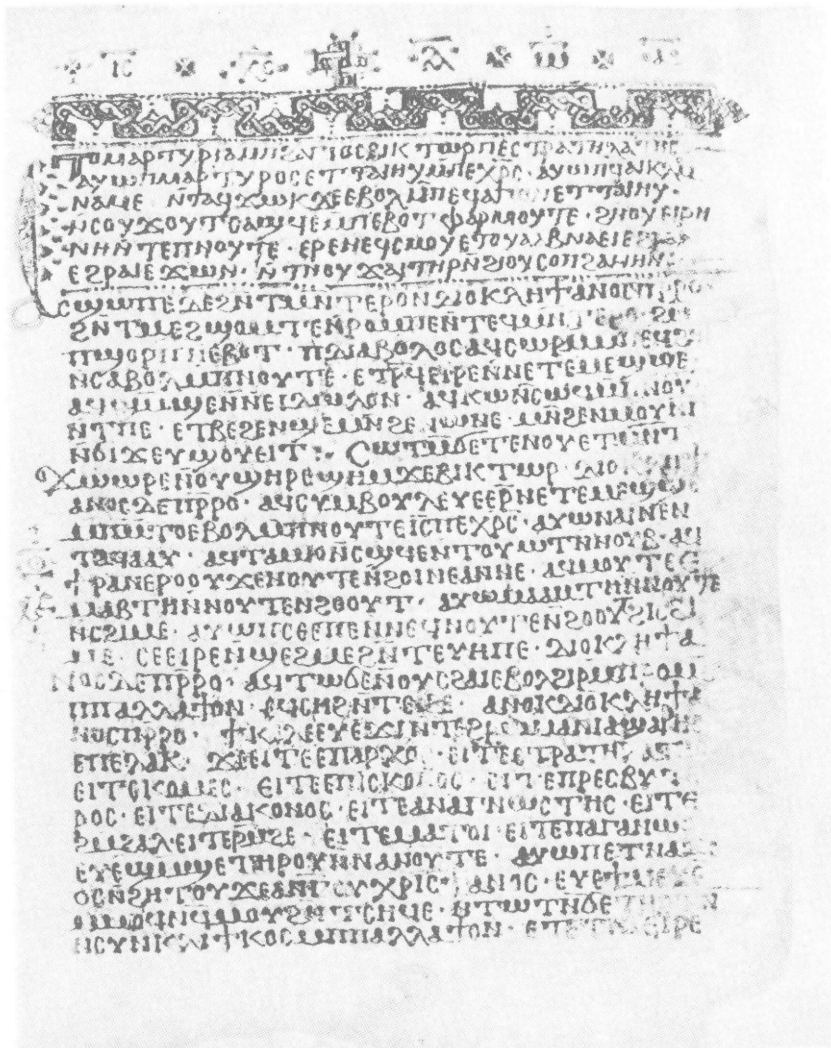 ⲓⲥ ⲭⲥ
ⲧⲙⲁⲣⲧⲩⲣⲓⲁ ⲙⲫⲁⲅⲓⲟⲥ ⲃⲓⲕⲧⲱⲣ ⲡⲉⲥⲧⲣⲁⲧⲏⲗⲁⲧⲏⲥ
ⲁⲩⲱ ⲡⲙⲁⲣⲧⲩⲣⲟⲥ ⲉⲧⲧⲁⲓⲏⲩ ⲙⲡⲉⲭⲣⲥ · ⲁⲩⲱ
ⲛⲁⲙⲉ ⲛⲧⲁϥϫⲱⲕ ⲉⲃⲟⲗ ⲙⲡⲉϥⲁⲅⲱⲛ ⲉⲧⲧⲁⲓⲏⲩ ·
ⲛⲥⲟⲩϫⲟⲩⲧⲥⲁϣϥⲉ ⲙⲡⲉⲃⲟⲧ ⲫⲁⲣⲙⲟⲩⲧⲉ · ϩⲛⲟⲩⲉⲓⲣⲏ
ⲛⲏ ⲛⲧⲉⲡⲛⲟⲩⲧⲉ · ⲉⲣⲉⲛⲉϥⲥⲙⲟⲩ ⲉⲧⲟⲩⲁⲁⲃ ⲛⲁⲉⲓ
ⲉϩⲣⲁⲓ ⲉϫⲱⲛ · ⲛⲧⲛⲟⲩϫⲁⲓ ⲧⲏⲣⲛ ϩⲓⲟⲩⲥⲟⲡ ϩⲁⲙⲏⲛ
ⲥϣⲱⲡⲉ ⲇⲉ ϩⲛⲧⲙⲛⲧⲉⲣⲟ ⲛⲇⲓⲟⲕⲗⲏϯⲁⲛⲟⲥ ⲡⲣⲣⲟ
ϩⲛⲧⲙⲉϩϣⲟⲙⲧⲉ ⲛⲣⲟⲙⲡⲉ ⲛⲧⲉϥⲙⲛⲧⲉⲣⲟ
ⲡϣⲟⲣⲡ ⲛⲉⲃⲟⲧ · ⲡⲇⲓⲁⲃⲟⲗⲟⲥ ⲁϥⲥⲱⲣⲙ
ⲛⲥⲁⲃⲟⲗ ⲙⲡⲛⲟⲩⲧⲉ · ⲉⲧⲣϥⲉⲓⲣⲉ ⲛⲛⲉⲧⲉⲙⲉϣϣⲉ
ⲁϥϣⲙϣⲉ ⲛⲛⲉⲓⲇⲱⲗⲟⲛ · ⲁϥⲕⲱ ⲛⲥⲱϥ ⲙⲡⲛⲟⲩ
ⲛⲧⲡⲉ · ⲉⲧⲃⲉ ϩⲉⲛϣⲉ ⲙⲛϩⲉⲛⲱⲛⲉ · ⲙⲛϩⲉⲛⲙⲟⲩⲛⲕ
ⲛϭⲓϫ ⲉⲩϣⲟⲩⲉⲓⲧ :· ⲥⲱⲧⲙ ϭⲉ ⲧⲉⲛⲟⲩ
ϫⲱⲱⲣⲉ ⲛⲟⲩϣⲏⲣⲉϣⲏⲙ ϫⲉⲃⲓⲕⲧⲱⲣ · ⲇⲓⲟⲕⲗⲏϯ
ⲁⲛⲟⲥ ⲇⲉ ⲡⲣⲣⲟ · ⲁϥⲥⲩⲙⲃⲟⲩⲗⲉⲩⲉ ⲉⲣⲛⲉⲧⲉⲙⲉϣϣⲉ
ⲙⲡⲙⲧⲟ ⲉⲃⲟⲗ ⲙⲡⲛⲟⲩⲧⲉ ⲓⲥ ⲡⲉⲭⲣⲥ · ⲁⲩⲱ ⲛⲁⲓ ⲛⲉⲛ
ⲧⲁϥⲁⲁⲩ · ⲁϥⲧⲁⲙⲓⲟ ⲛⲥⲁϣϥⲉ ⲛⲧⲟⲩⲱⲧ ⲛⲛⲟⲩⲃ · ⲁϥ
ϯⲣⲁⲛ ⲉⲣⲟⲟⲩ ϫⲉⲛⲟⲩⲧⲉ ⲛϩⲟⲓⲛⲉ ⲁⲛⲛⲉ · ⲁϥⲙⲟⲩⲧⲉ ⲉ
ⲙⲁⲃⲧⲏ ⲛⲛⲟⲩⲧⲉ ⲛϩⲟⲟⲩⲧ · ⲁⲩⲱ ⲙⲁⲃⲧⲏ ⲛⲛⲟⲩⲧⲉ
ⲛⲥϩⲓⲙⲉ · ⲁⲩⲱ ⲡⲥⲉⲉⲡⲉ ⲛⲛⲉϥⲛⲟⲩⲧⲉ ⲛϩⲟⲟⲩⲧ ϩⲓⲥϩⲓ
ⲙⲉ · ⲥⲉⲉⲓⲣⲉ ⲛϣⲉⲥⲙⲉ ϩⲛⲧⲉⲩⲏⲡⲉ · ⲇⲓⲟⲕⲗⲏϯⲁ
ⲛⲟⲥ ⲇⲉ ⲡⲣⲣⲟ · ⲁϥⲧⲱϭⲉ ⲛⲟⲩⲥϩⲁⲓ ⲉⲃⲟⲗ ϩⲓⲣⲙⲡⲣⲟ ⲙ
ⲡⲡⲁⲗⲗⲁϯⲟⲛ · ⲉϥⲥⲏϩ ⲛⲧⲉⲓϩⲉ · ⲁⲛⲟⲕ ⲇⲓⲟⲕⲗⲏϯⲁ
ⲛⲟⲥ ⲡⲣⲣⲟ · ϯⲕⲉⲗⲉⲩⲉ ϫⲓⲛⲧⲉϩⲣⲱⲙⲁⲛⲓⲁ ϣⲁϩⲣⲁⲓ
ⲉⲡⲉⲗⲁⲕ · ϫⲉ ⲉⲓⲧⲉ ⲉⲡⲁⲣⲭⲟⲥ · ⲉⲓⲧⲉ ⲥⲧⲣⲁⲧⲏⲗⲁⲧⲏⲥ
ⲉⲓⲧⲉ ⲕⲟⲙⲉⲥ · ⲉⲓⲧⲉ ⲉⲡⲓⲥⲕⲟⲡⲟⲥ · ⲉⲓⲧⲉ ⲡⲣⲉⲥⲃⲩⲧⲉ
ⲣⲟⲥ · ⲉⲓⲧⲉ ⲇⲓⲁⲕⲟⲛⲟⲥ · ⲉⲓⲧⲉ ⲁⲛⲁⲅⲛⲱⲥⲧⲏⲥ · ⲉⲓⲧⲉ
ϩⲙϩⲁⲗ ⲉⲓⲧⲉ ⲣⲙϩⲉ · ⲉⲓⲧⲉ ⲙⲁⲧⲟⲓ · ⲉⲓⲧⲉ ⲡⲁⲅⲁⲛⲟⲥ
ⲉⲩⲉϣⲙϣⲉ ⲧⲏⲣⲟⲩ ⲛⲛⲁⲛⲟⲩⲧⲉ · ⲁⲩⲱ ⲡⲉⲧⲛⲁϫⲟ
ⲟⲥ ⲛϩⲏⲧⲟⲩ ϫⲉⲁⲛⲅ ⲟⲩⲭⲣⲓⲥϯⲁⲛⲟⲥ · ⲉⲩⲉ
ⲙⲙⲟϥ ⲛϥⲙⲟⲩ ϩⲛⲧⲥⲏϥⲉ · ⲛⲧⲱⲧⲛ ϭⲉ ⲧⲏⲣⲧⲛ
ⲛⲥⲩⲛⲕⲗⲏϯⲕⲟⲥ ⲙⲡⲡⲁⲗⲗⲁϯⲟⲛ · ⲉⲧⲉⲧⲛⲉⲉⲓⲣⲉ